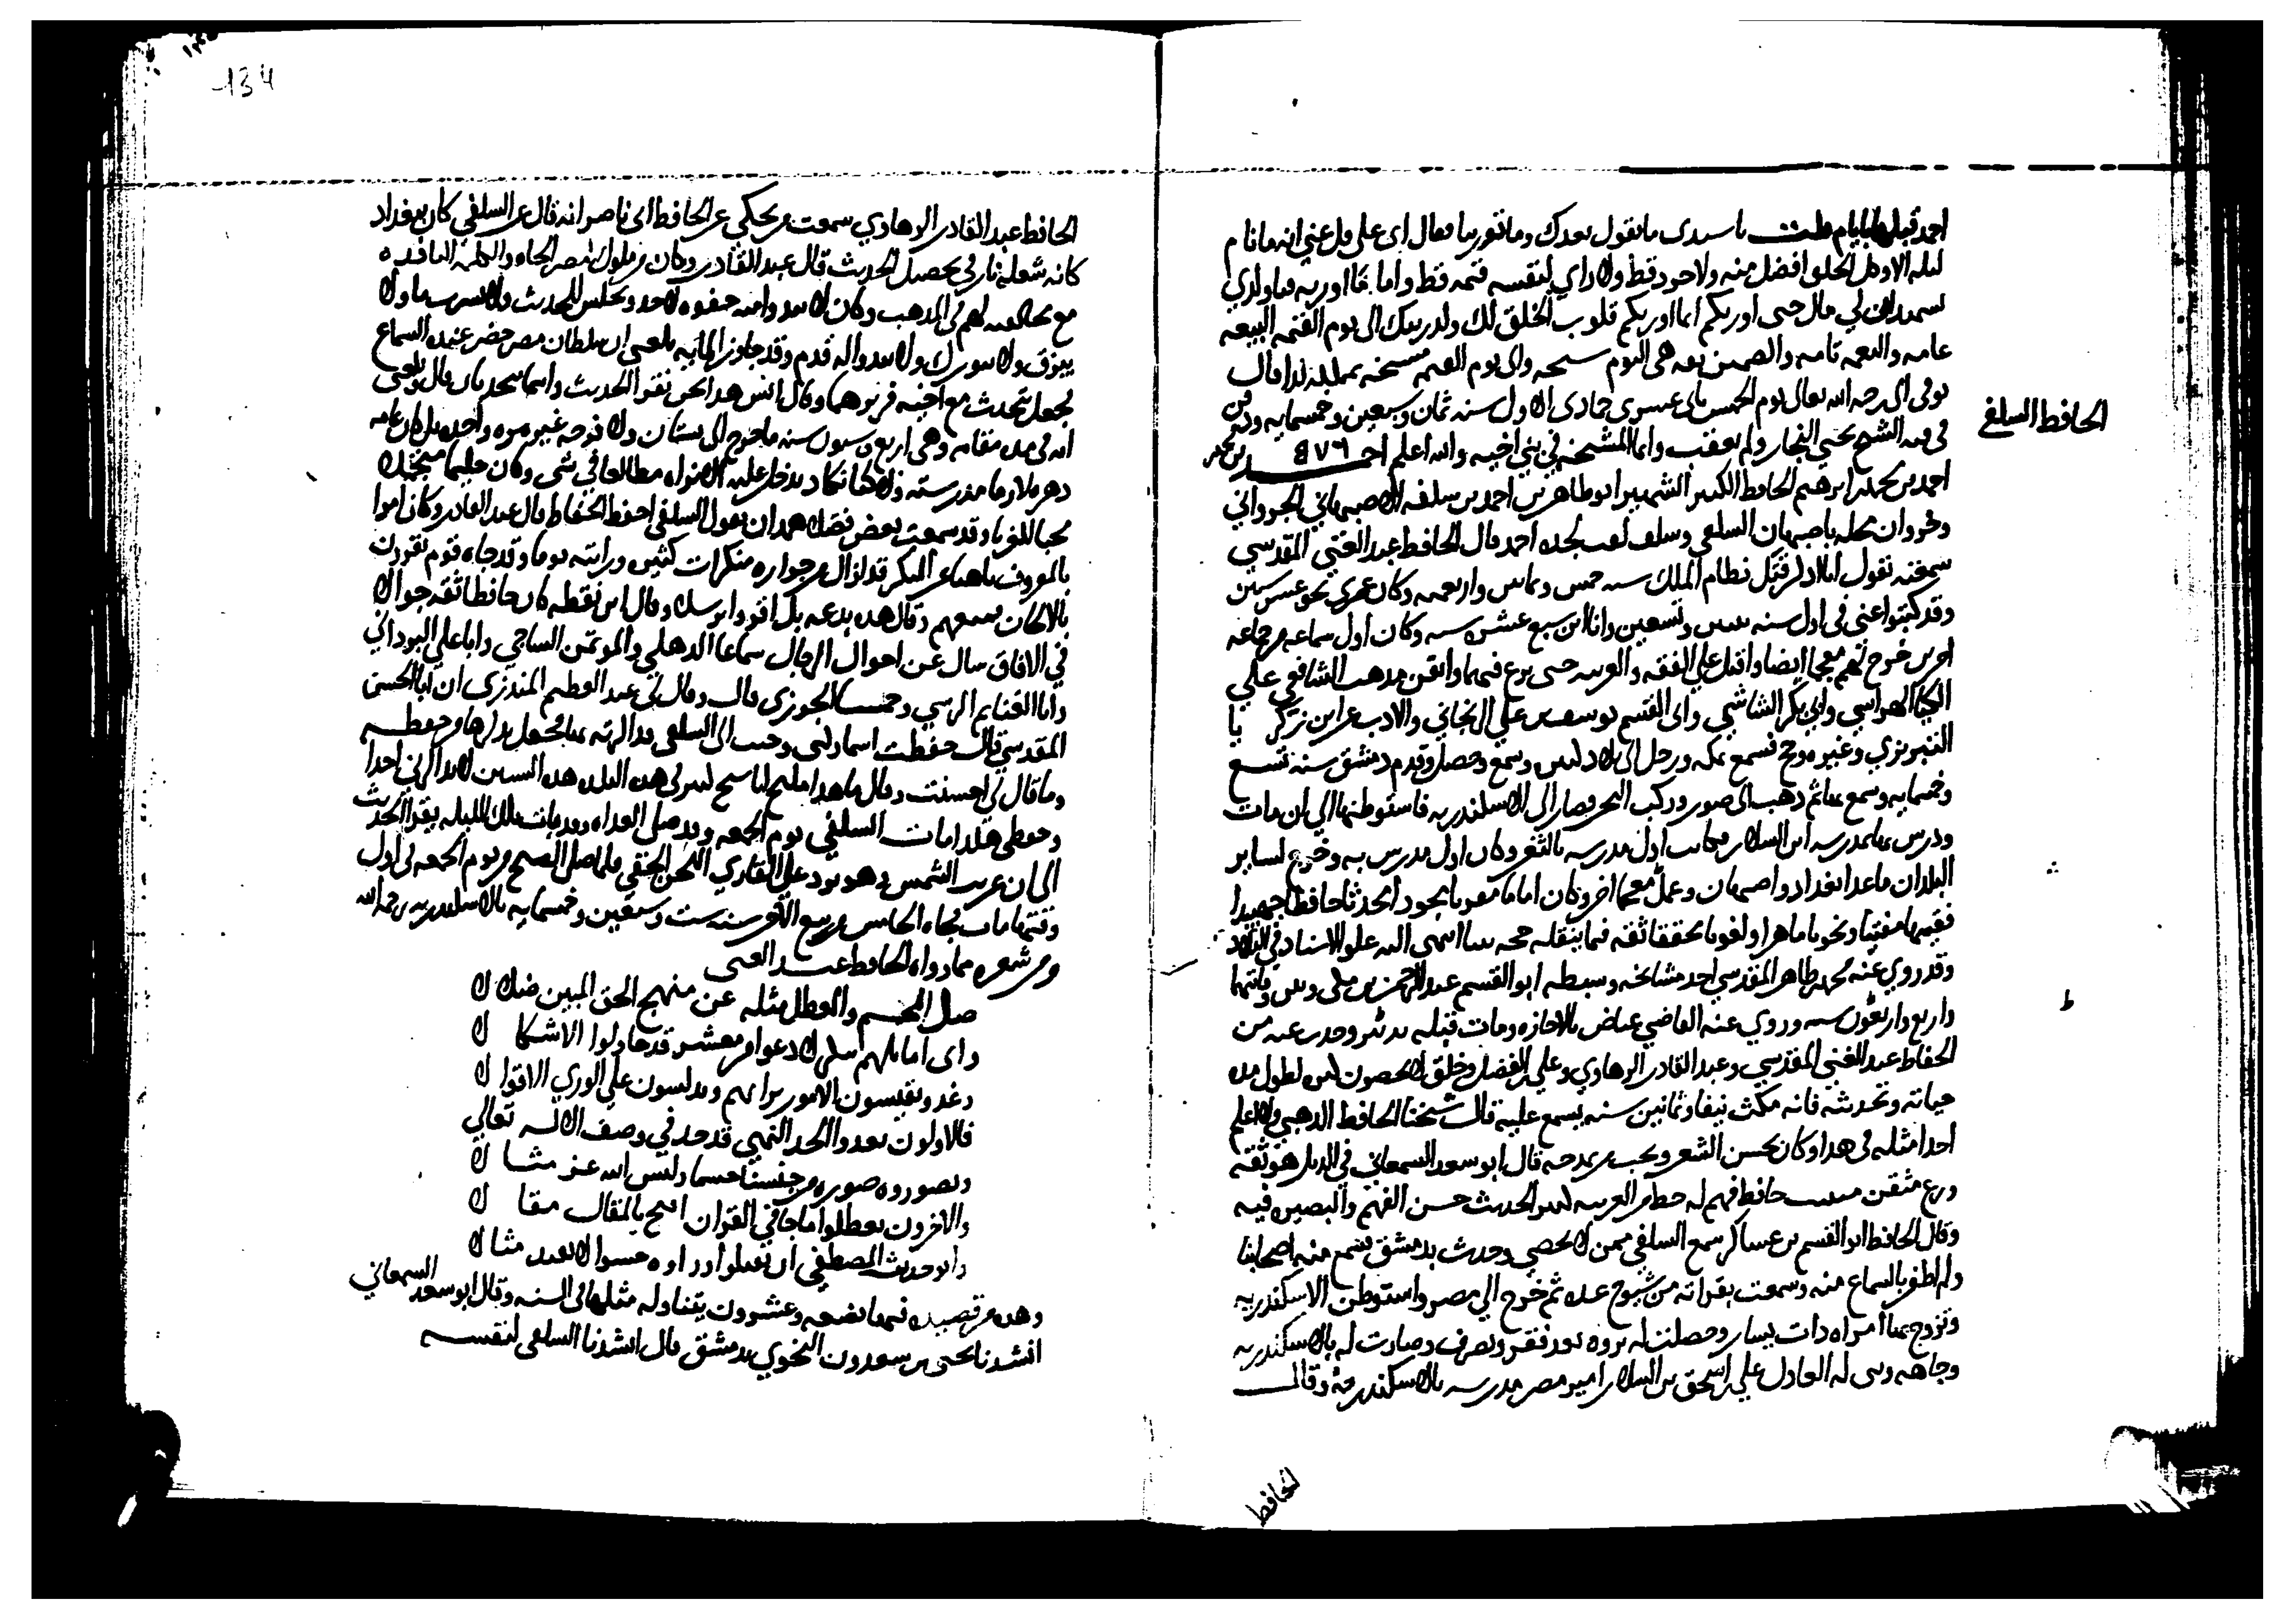 احمد قبلها بايام قلت يا سيدي ما تقول بعدك وما تورينا فقال اي علي قل عني انه ما نام
ليله الا وكل الخلق افضل منه ولا حرد قط ولا راي لنفسه قيمه قط واما
لي مال حتى اوريكم انما اوريكم قلوب الخلق لك ولذريتك الى يوم القيمه البيعه
عامه والنعمه تامه والضمين ثقه هي اليوم وإلى يوم القيمه
توفي الى رحمه الله تعالى يوم الخميس ثاني عشري جمادى الاول سنه ثمان وسبعين وخمسمايه ودفن
في قبه الشيخ يحيى النجار ولم يعقب وانما المشيخه في بني اخيه والله اعلم ٥٧٦ احمد بن محمد
الحافط السلفي
احمد بن محمد بن ابرهيم الحافظ الكبير الشهير ابو طاهر بن احمد بن سلفه الاصبهاني الجرواني
وجروان محله باصبهان السلفي وسلفه لقب لجده احمد قال الحافظ عبد الغني المقدسي
سمعته يقول انا اذكر قتل نظام الملك سنه خمس وثمانين واربعمه وكان عمري نحو عشر سنين
وقد كتبوا عني في اول سنه اثنين وتسعين وانا ابن سبع عشره سنه وكان اول سماعه من جماعه
خرج لهم معجما ايضا واقبل على الفقه والعربيه حتى برع فيهما واتقن مذهب الشافعي على
الكيا الهراسي وابي بكر الشاشي وابي القسم يوسف بن علي الزنجاني والادب عن ابي زكريا
التبريزي وغيره وحج فسمع بمكه ورحل الى بلاد وسمع وحصل وقدم دمشق سنه تسع
وخمسمايه وسمع بها ثم ذهب الى صور وركب البحر وصار الى الاسكندريه فاستوطنها الى ان مات
ودرس بها بمدرسه ابن السلار فكانت اول مدرسه بالثغر وكان اول مدرس به وخرج لساير
البلدان ما عدا بغداد واصبهان وعمل معجما اخر وكان اماما مقريا مجودا محدثا حافظا جهبذا
فقيها مفتيا ونحويا ماهرا ولغويا محققا ثقه فيما ينقله حجه ثبتا انتهى اليه علو الاسناد في البلاد
وقد روي عنه محمد بن طاهر المقدسي احد مشايخه وسبطه ابو القسم عبد الرحمن بن مكي وبين وفاتيهما
ماية واربع واربعون سنه وروي عنه القاضي عياض بالاجازه ومات قبله بدهر وحدث عنه من
الحفاظ عبد الغني المقدسي وعبد القادر الرهاوي وعلي بن المفضل وخلق لا يحصون لطول مده
حياته وتحديثه فانه مكث نيفا وثمانين سنه يسمع عليه قال شيخنا الحافظ الذهبي ولا اعلم
احدا مثله في هذا وكان يحسن الشعر ويحب من يمدحه قال ابو سعد السمعاني في الذيل هو ثقه
ورع متقن مثبت حافظ فهم له حظ من العربيه كثير الحديث حسن الفهم والبصيره فيه
وقال الحافظ ابو القسم بن عساكر سمع السلفي ممن لا يحصى وحدث بدمشق فسمع منه اصحابنا
ولم اظفر بالسماع منه وسمعت بقراته من شيوخ عده ثم خرج الى مصر واستوطن الاسكندريه
وتزوج بها امراه ذات يسار وحصلت له ثروه بعد فقر وتصرف وصارت له بالاسكندريه
وجاهه وبنى له العادل علي بن اسحق بن السلار امير مصر مدرسه بالاسكندريه وقال
الحافظ
134
الحافظ عبد القادر الرهاوي سمعت من يحكي عن الحافظ ابن ناصر انه قال عن السلفي كان ببغداد
كانه شعله نار في تحصيل الحديث قال عبد القادر وكان له عند ملوك مصر الجاه والكلمه النافذه
مع مخالفته لهم في المذهب وكان لا تبدو منه جفوه لاحد ويجلس للحديث ولا يشرب ماء ولا
يبزق ولا يتورك ولا تبدو له قدم وقد جاوز المايه بلغني ان سلطان مصر حضر عنده السماع
فجعل يتحدث مع اخيه فزبرهما وقال ايش هذا نحن نقرا الحديث وانتما تتحدثان قال وبلغني
انه في مده مقامه وهي اربع وستون سنه ما خرج الى بستان ولا فرجه غير مره واحده بل كان عامه
دهره ملازما مدرسته وما كنا نكاد ندخل عليه الا نراه مطالعا في شي وكان حليما متحملا
وقد سمعت بعض فضلا همدان يقول السلفي احفظ الحفاظ قال عبد القادر وكان امرا
بالمعروف ناهيا عن المنكر قد ازال من جواره منكرات كثيره ورايته يوما وقد جاه قوم يقرون
بالالحان فمنعهم وقال هذه بدعه بل اقروا ترسلا وقال ابن نقطه كان حافظا ثقه جوالا
في الافاق سال عن احوال الرجال شجاعا الذهلي والموتمن الساجي وابا علي البرداني
وابا الغنايم النرسي وخميسا الجوزي قال وقال لي عبد العظيم المنذري ان ابا الحسن
المقدسي قال حفظت اسما وكنى وجيت الى السلفي وذاكرته بها فجعل يذكرها من حفظه
وما قال لي احسنت وقال ما هذا مليح انا شيخ كبير في هذه البلده هذه السنين لا يذاكرني احد
وحفظي هكذا مات السلفي يوم الجمعه وبات تلك الليله يقرا الحديث
الى ان غربت الشمس وهو يرد على القاري اللحن الخفي فلما صلى الصبح من يوم الجمعه في اول
وقتها مات فجاه الخامس من ربيع الاخر سنه ست وسبعين وخمسمايه بالاسكندريه رحمه الله
ومن شعره مما رواه الحافظ عبد الغني
ضل المجسم والمعطل مثله عن منهج الحق المبين ضلالا
واتى اماثلهم بنكر لا رعوا من معشر قد حاولوا الاشكالا
وغدو يقيسون الامور برايهم ويدلسون على الوري الاقوالا
فالاولون تعدوا الحد الذي قد حد في وصف الاله تعالى
وتصوروه صوره من جنسنا جسما وليس الله عز مثالا
والاخرون تعطلوا ما جا في القران اقبح بالمقال مقالا
وابو حديث المصطفى ان يقبلوا وراوه حشوا لا يفيد مثالا
وهذه من قصيده فيها بضعه وعشرون بيتا وله مثلها في السنه وقال ابو سعد السمعاني
انشدنا يحيى بن سعدون النحوي بدمشق قال انشدنا السلفي لنفسه